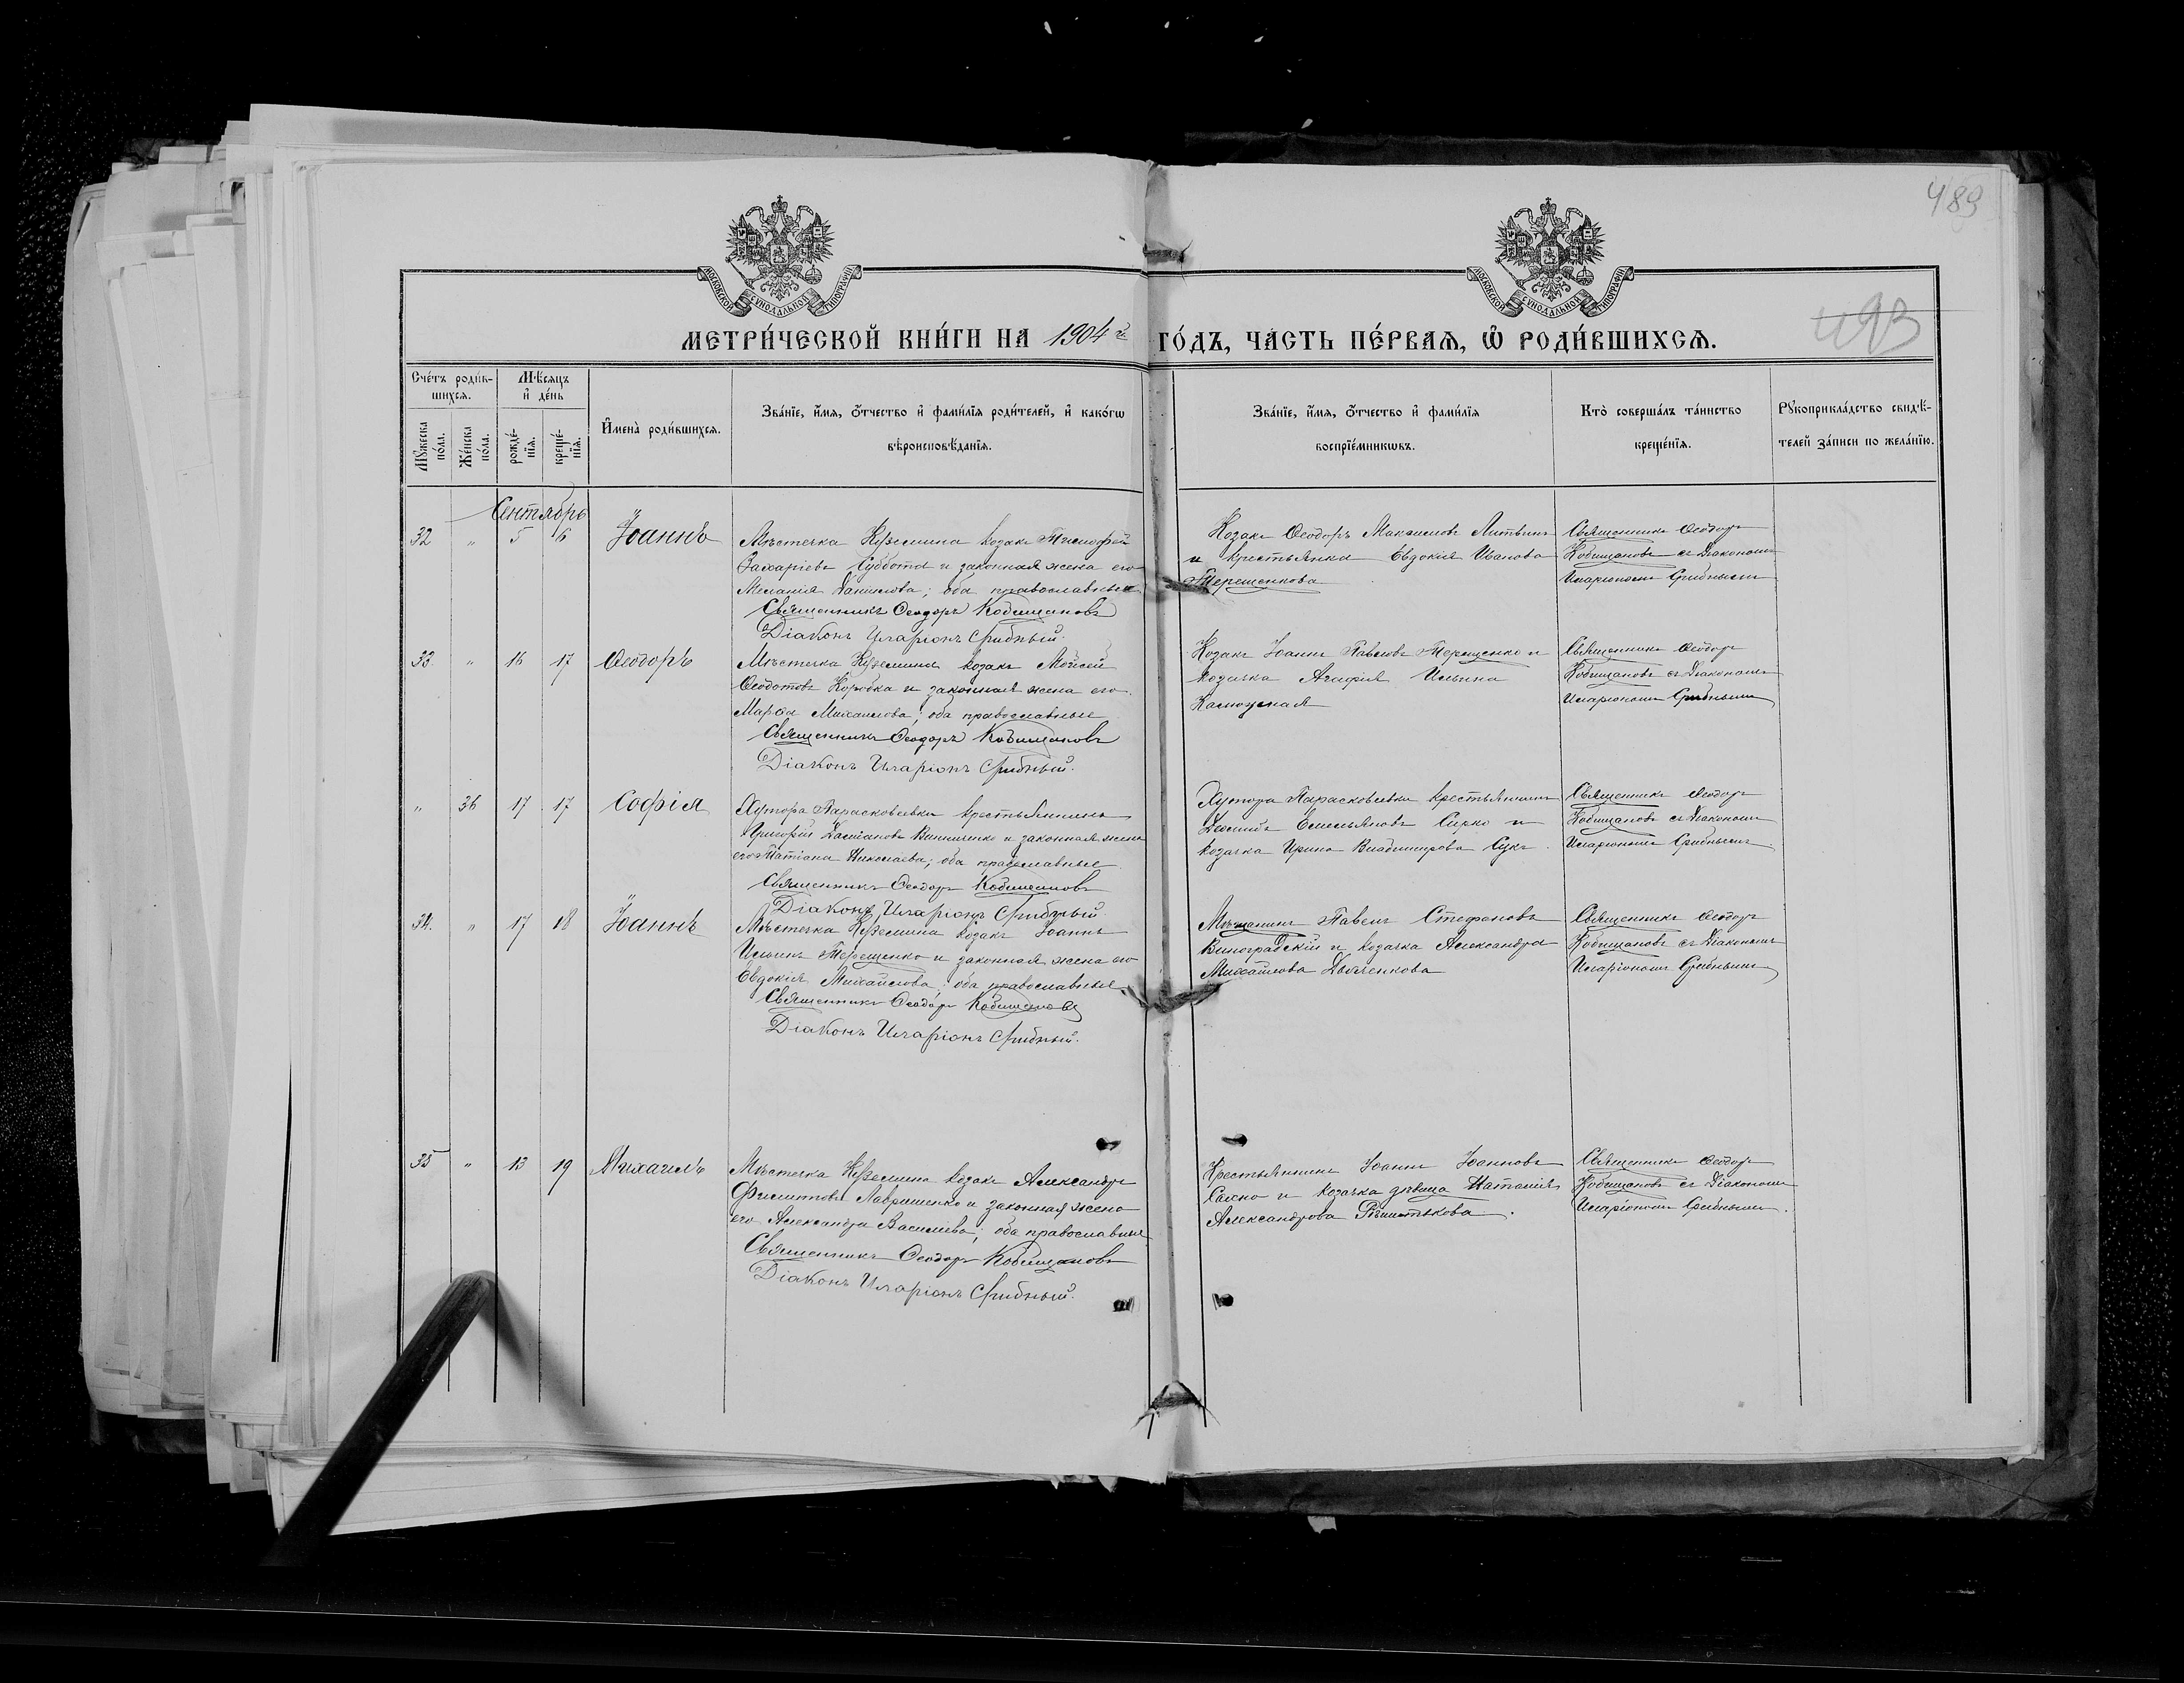 489
493
МОСКОВСКОЙ СУНОДАЛЬНОЙ ТИПОГРАФІИ
МОСКОВСКОЙ СУНОДАЛЬНОЙ ТИПОГРАФІИ
МЕТРИ́ЧЕСКОЙ КНИ́ГИ НА 1904 й ГО́ДЪ, ЧА́СТЬ ПЕ́РВАЯ, Ѽ РОДИ́ВШИХСѦ.
Сче́тъ роди́в-
шихсѧ.
Мѣ́сѧцъ
и҆ де́нь
Мꙋ́жеска по́ла.
Же́нска по́ла.
рожде́-нїѧ.
креще́-нїѧ.
И҆мена̀ роди́вшихсѧ.
Зва́нїе, и҆́мѧ, ѻ҆́тчество и҆ фами́лїѧ роди́телей, и҆ како́гѡ
вѣроисповѣ́данїѧ.
Зва́нїе, и҆́мѧ, ѻ҆́тчество и҆ фами́лїѧ
воспрїе́мникѡвъ.
Кто̀ соверша́лъ та́инство
креще́нїѧ.
Рꙋкоприкла́дство свидѣ́-
телей за́писи по жела́нїю.
Сентябрь
32 " 5 6 Іоаннъ
Мѣстечка Куземина козакъ Тимофей
Захаріевъ Суббота и законная жена его
Меланія Даніилова; оба православные
Священникъ Ѳеодоръ Кобищановъ
Діаконъ Иларіонъ Срибный.
Козакъ Ѳеодоръ Максимовъ Литвинъ
и крестьянка Евдокія Иванова
Терещенкова
Священникъ Ѳеодоръ
Кобищановъ съ Діакономъ
Иларіономъ Срибнымъ
33. " 16 17 Ѳеодоръ
Мѣстечка Куземина козакъ Моисей
Ѳеодотовъ Коробка и законная жена его
Марѳа Михаилова; оба православные
Священникъ Ѳеодоръ Кобищановъ
Діаконъ Иларіонъ Срибный.
Козакъ Іоаннъ Павловъ Терещенко и
козачка Агафія Ильина
Священникъ Ѳеодоръ
Кобищановъ съ Діакономъ
Иларіономъ Срибнымъ
" 36 17 17 Софія
Хутора Парасковѣевки крестьянинъ
Григорій Даміановъ Винниченко и законная жена
его Татіана Николаева; оба православные
Священникъ Ѳеодоръ Кобищановъ
Діаконъ Иларіонъ Срибный.
Хутора Парасковѣевки крестьянинъ
Емельяновъ Сирко и
козачка Ирина Владимірова Сукъ
Священникъ Ѳеодоръ
Кобищановъ съ Діакономъ
Иларіономъ Срибнымъ.
34. " 17 18 Іоаннъ
Мѣстечка Куземина козакъ Іоаннъ
Ильинъ Терещенко и законная жена его
Евдокія Михайлова; оба православные
Священникъ Ѳеодоръ Кобищановъ
Діаконъ Иларіонъ Срибный.
Мѣщанинъ Павелъ Стефановъ
Виноградскій и козачка Александра
Михайлова Дьяченкова
Священникъ Ѳеодоръ
Кобищановъ съ Діакономъ
Иларіономъ Срибнымъ
35 " 13 19 Михаилъ
Мѣстечка Куземина козакъ Александръ
Филипповъ Лавриненко и законная жена
его Александра Васильева; оба православные
Священникъ Ѳеодоръ Кобищановъ
Діаконъ Иларіонъ Срибный.
Крестьянинъ Іоаннъ Іоанновъ
Сахно и козачка дѣвица Наталія
Александрова
Священникъ Ѳеодоръ
Кобищановъ съ Діакономъ
Иларіономъ Срибнымъ.